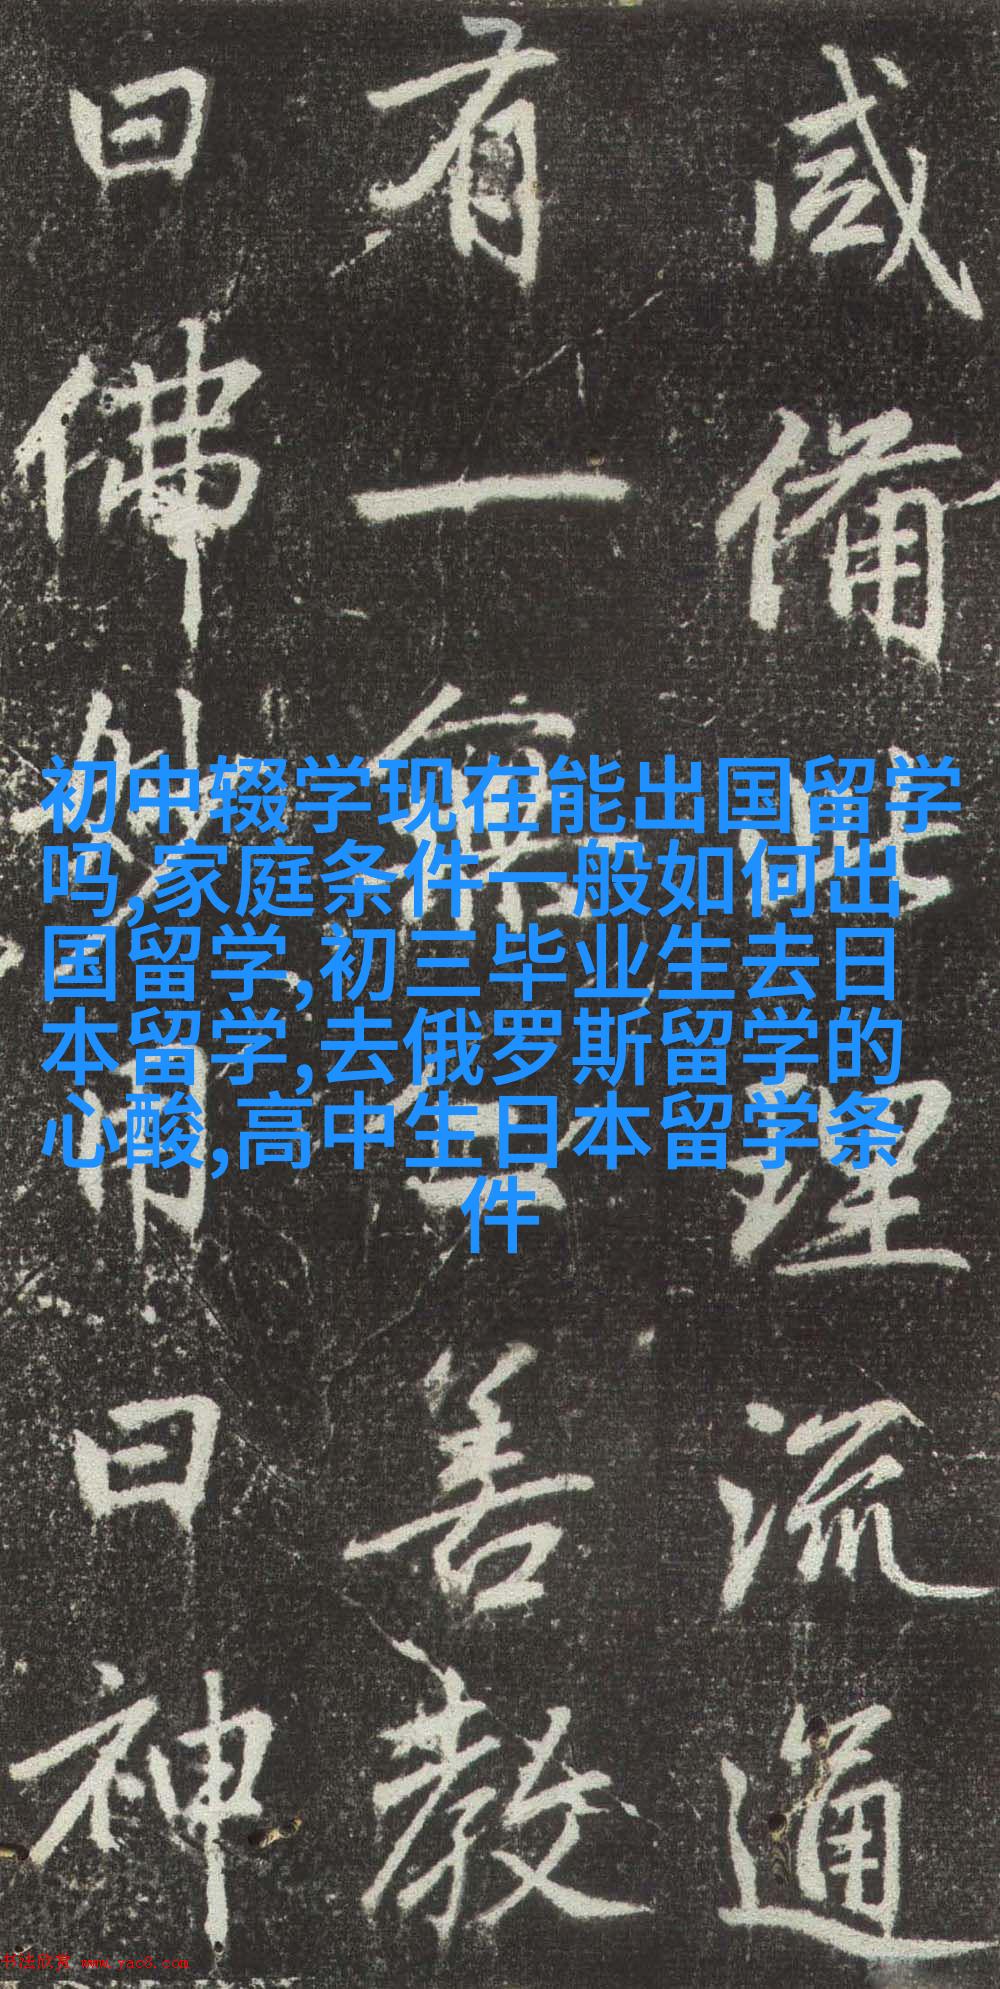 咸備理流通
有一善教
曰佛妙用曰神
初中辍学现在能出国留学
吗,家庭条件一般如何出
国留学,初三毕业生去日
本留学,去俄罗斯留学的
心酸,高中生日本留学条
件
书法欣赏 www.yac8.com